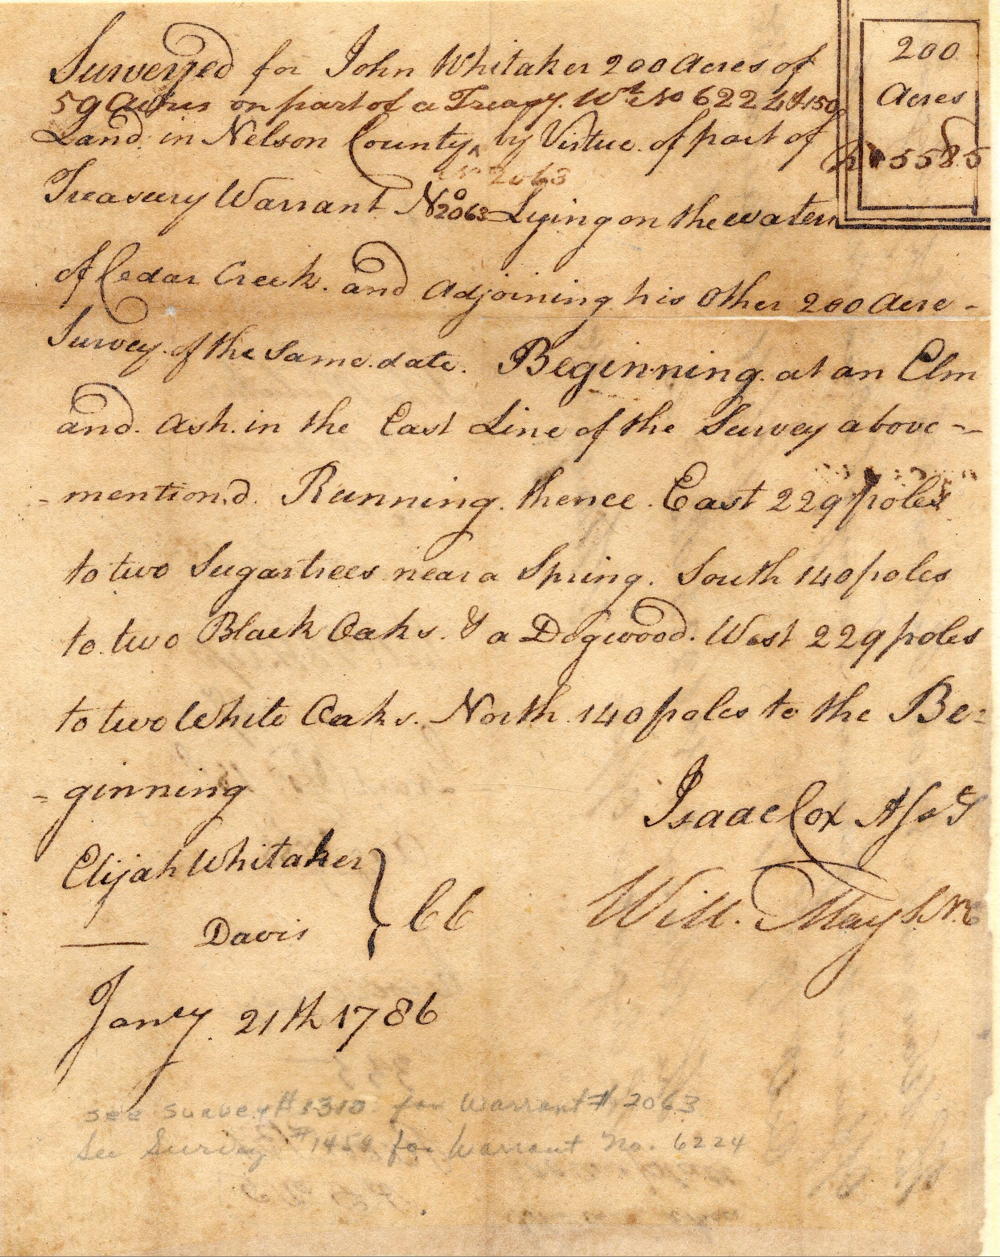 200
Acres
No 5585
Surveyed for John Whitaker 200 Acres of
50 Acres on part of a Treasy. Wt. No 6224 & 150
Land in Nelson County ^ by Virtue of part of
No 2063
Treasury Warrant No 2063 Lying on the waters
of Cedar Creek. and Adjoining his other 200 Acre -
Survey of the same date. Beginning at an Elm
and Ash in the East Line of the Survey above -
- mention,d. Running thence East 229 poles
to two Sugartrees near a Spring. South 140 poles
to two Black Oaks. & a Dogwood. West 229 poles
to two White Oaks. North 140 poles to the Be=
= ginning
Isaac Cox Asst
Elijah Whitaker } CC
— Davis
Will. May S.N.C
Jany 21th 1786
see survey #1310 for warrant # 2063
See Survey #1454 for Warrant No. 6224